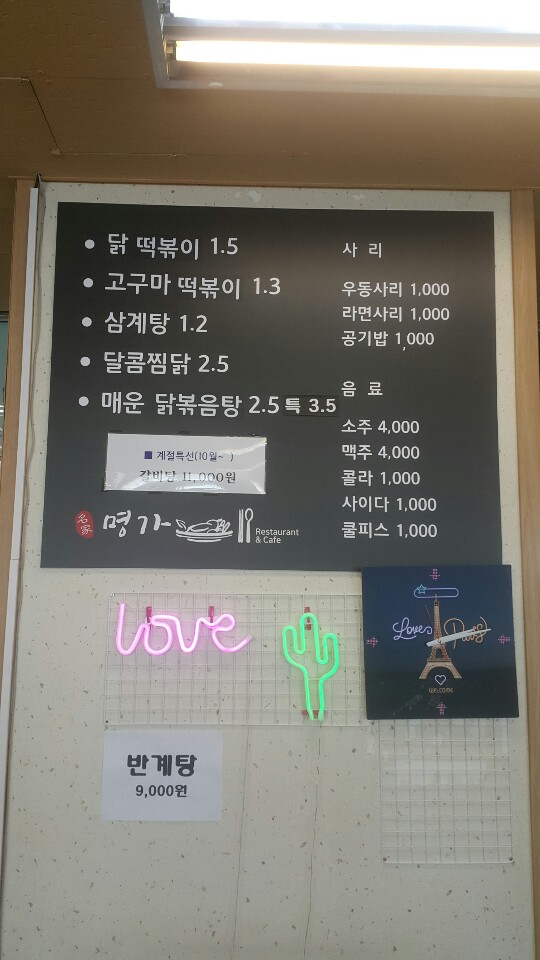 ● 닭 떡볶이 1.5
● 고구마 떡볶이 1.3
● 삼계탕 1.2
● 달콤찜닭 2.5
● 매운 닭볶음탕 2.5 특 3.5
■ 계절특선(10월~ )
갈비탕 11,000원
명가
Restaurant
& Cafe
사 리
우동사리 1,000
라면사리 1,000
공기밥 1,000
음 료
소주 4,000
맥주 4,000
콜라 1,000
사이다 1,000
쿨피스 1,000
love
Loves Paris
WELCOME
반계탕
9,000원